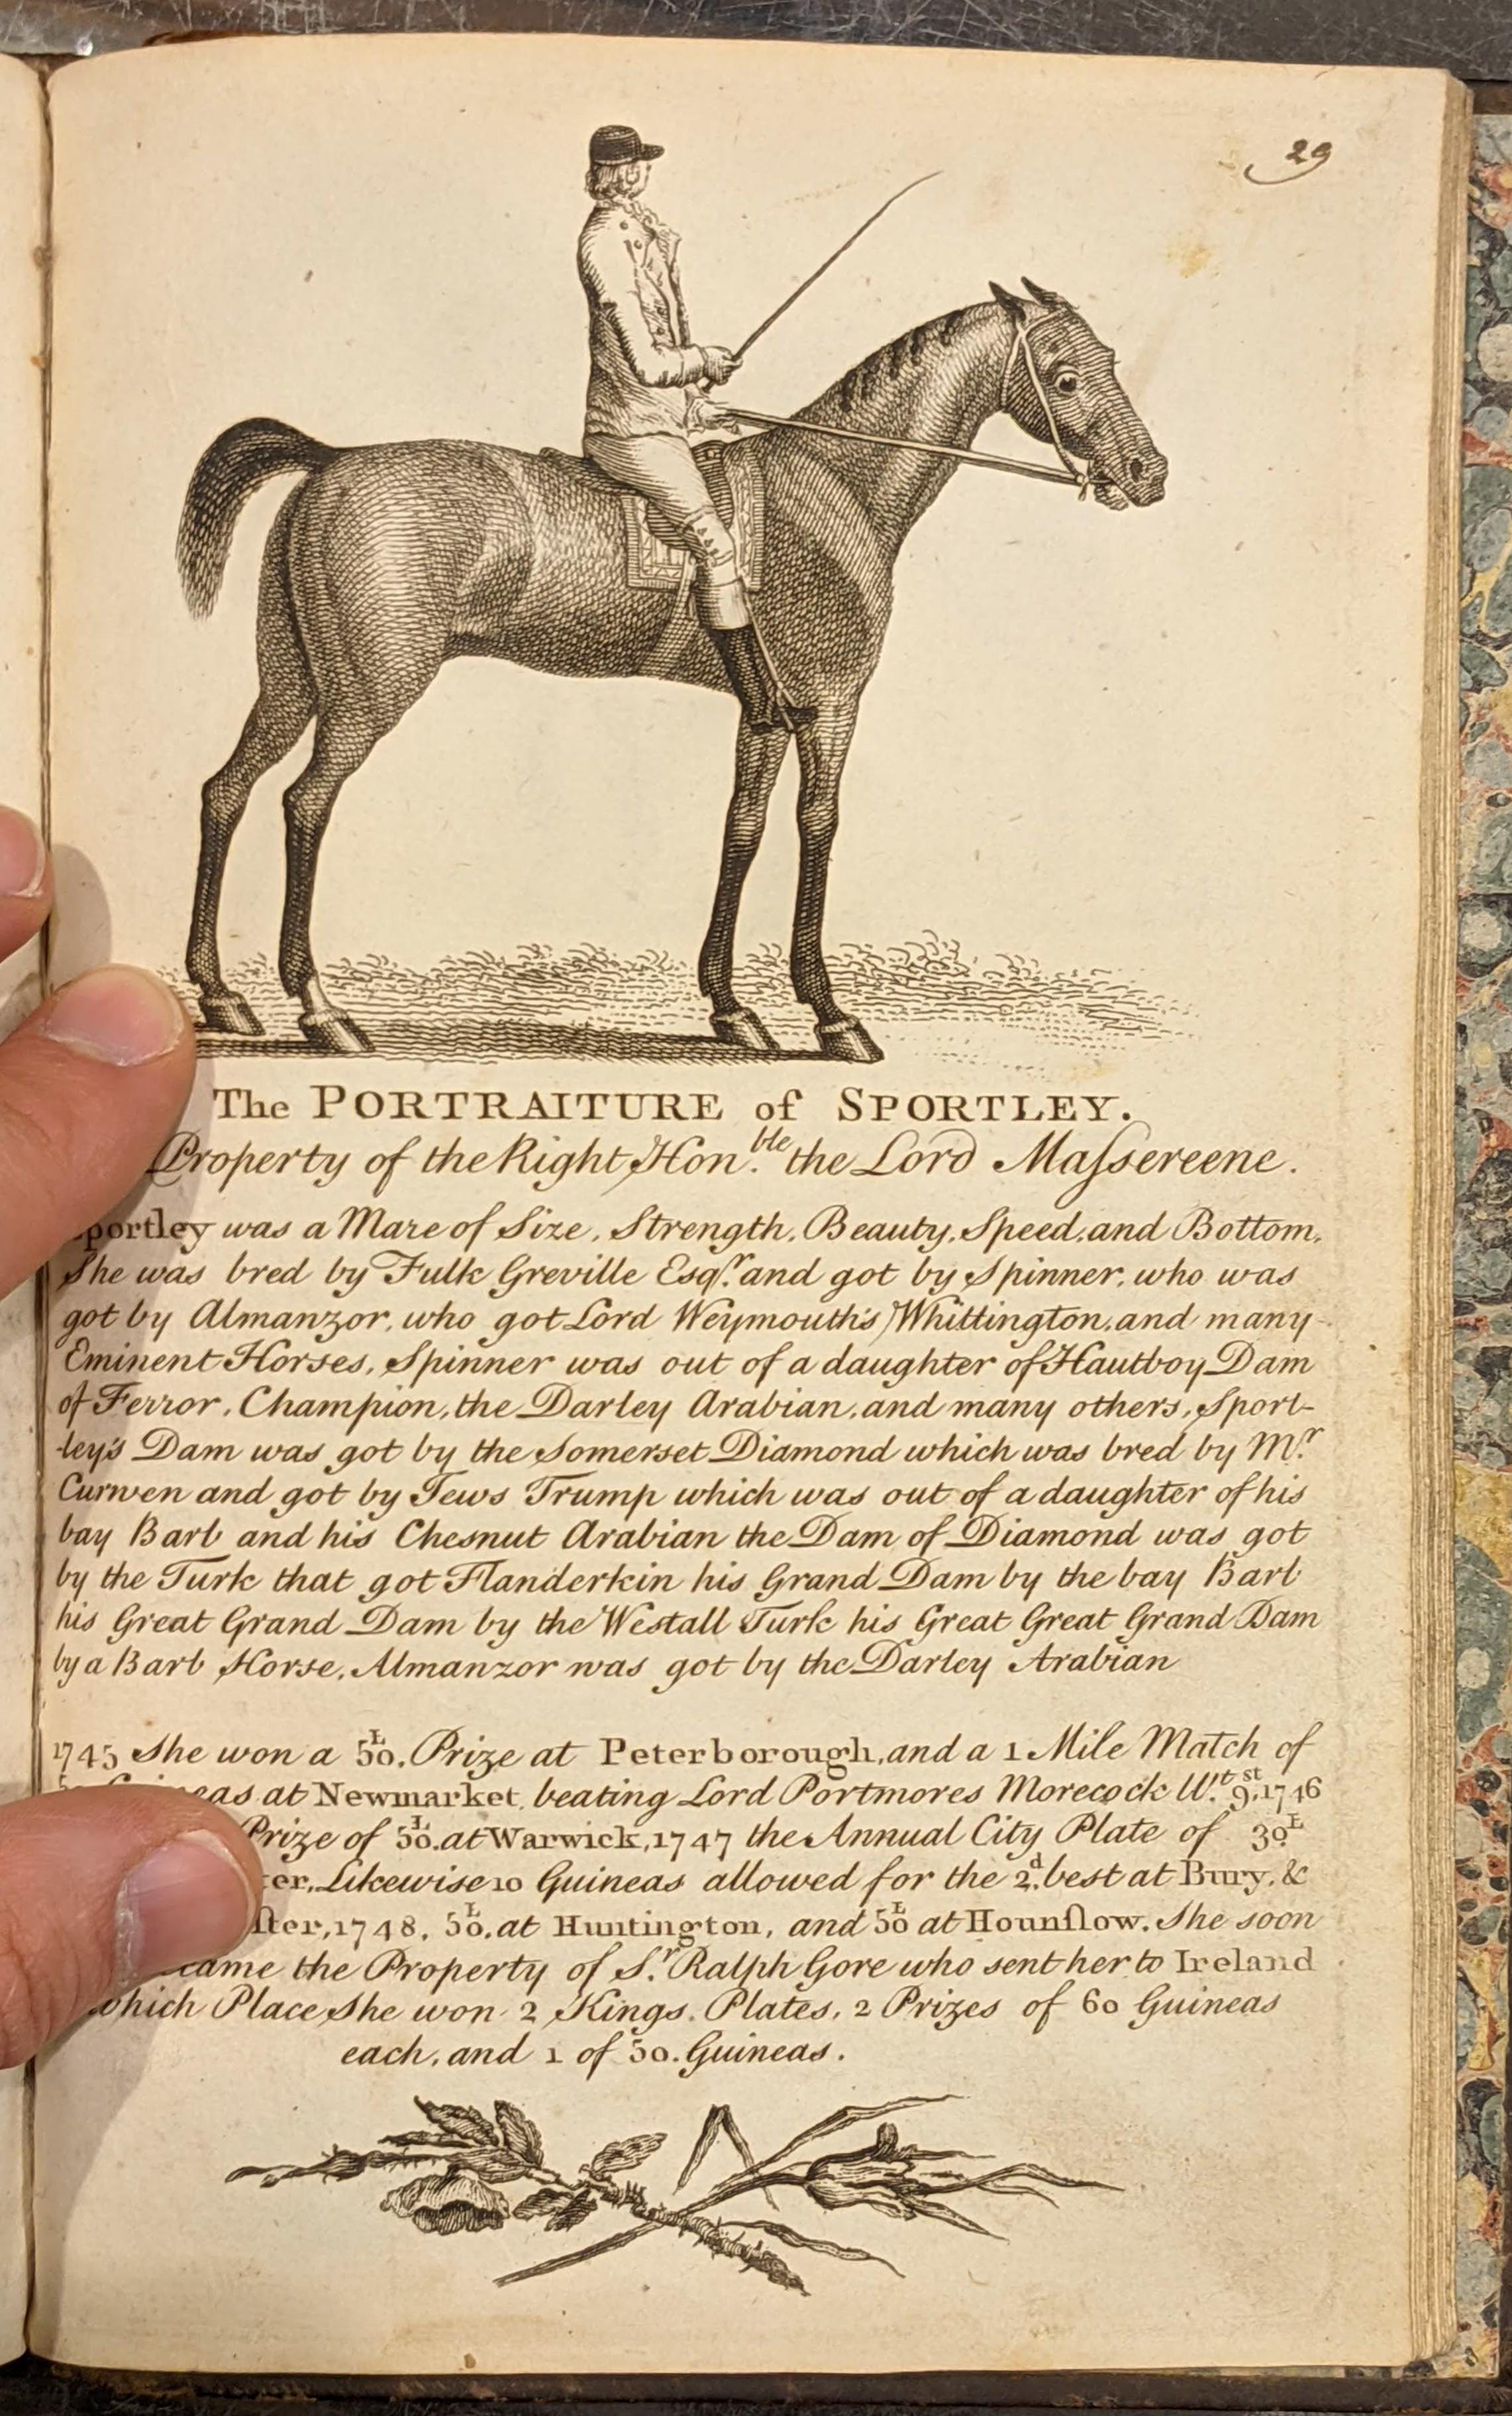 29
The PORTRAITURE of SPORTLEY.
Property of the Right Hon.ble the Lord Maſsereene.
portley was a Mare of Size, Strength, Beauty, Speed, and Bottom,
She was bred by Fulk Greville Esq.r and got by Spinner, who was
got by Almanzor, who got Lord Weymouth's Whittington, and many
Eminent Horses, Spinner was out of a daughter of Hautboy Dam
of Terror, Champion, the Darley Arabian, and many others, Sport-
-ley's Dam was got by the Somerset Diamond which was bred by M.r
Curwen and got by Jews Trump which was out of a daughter of his
bay Barb and his Chesnut Arabian the Dam of Diamond was got
by the Turk that got Flanderkin his Grand Dam by the bay Barb
his Great Grand Dam by the Westall Turk his Great Great Grand Dam
by a Barb Horse, Almanzor was got by the Darley Arabian
1745 She won a 50.L Prize at Peterborough, and a 1 Mile Match of
eas at Newmarket, beating Lord Portmores Morecock W.t 9.st 1746
Prize of 50.L at Warwick, 1747 the Annual City Plate of 30L
ter, Likewise 10 Guineas allowed for the 2.d best at Bury, &
ſter, 1748, 50.L at Huntington, and 50L at Hounſlow. She soon
came the Property of S.r Ralph Gore who sent her to Ireland
which Place She won 2 Kings Plates, 2 Prizes of 60 Guineas
each, and 1 of 50. Guineas.